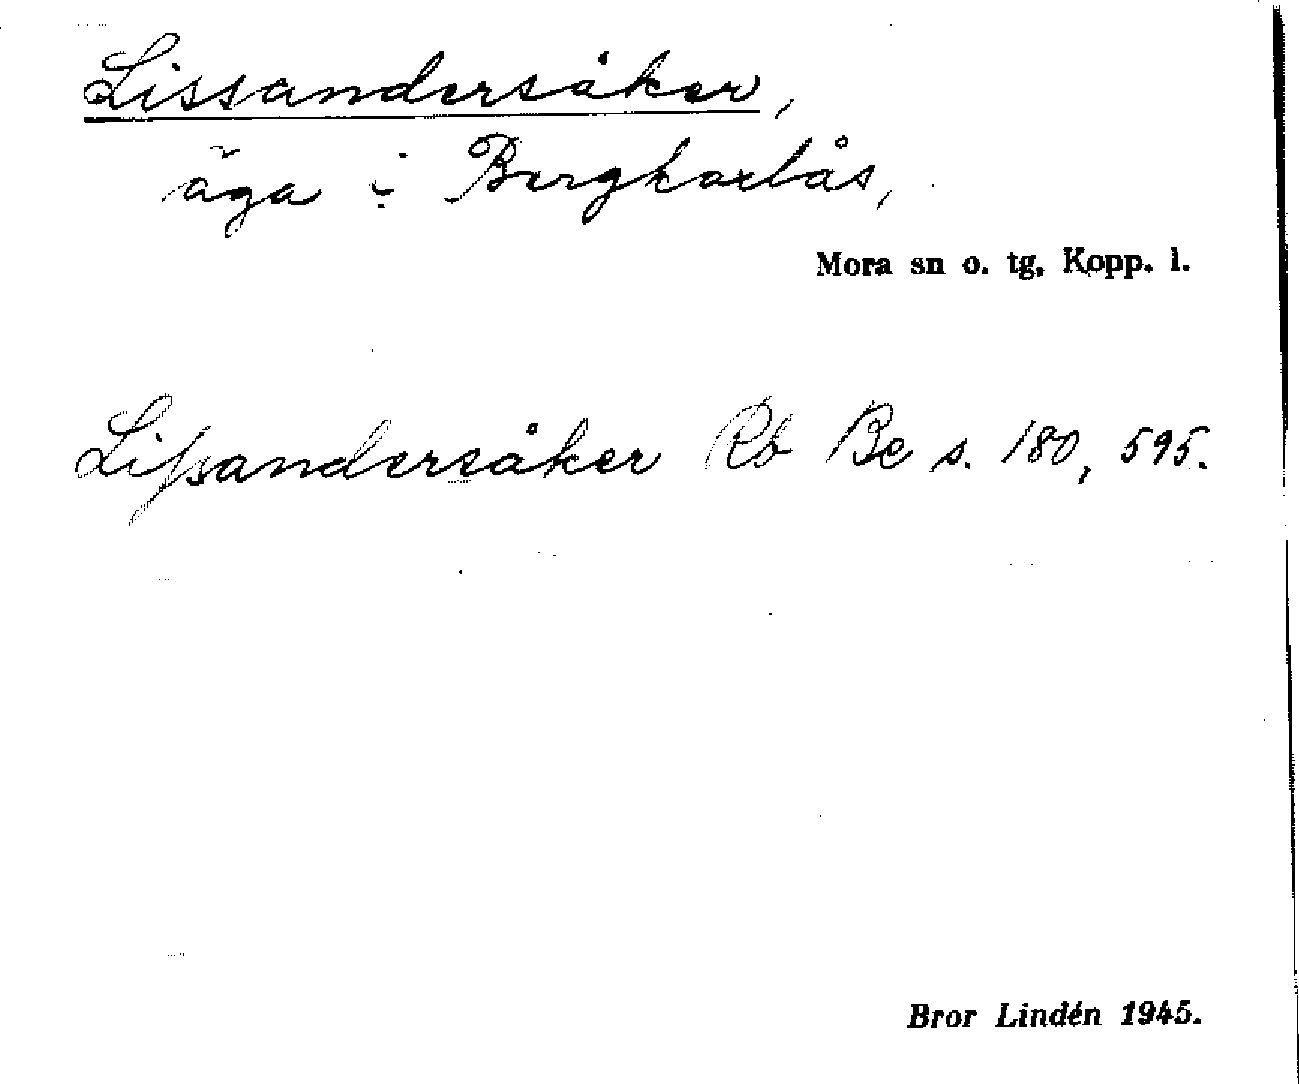 Lissandersåker,
äga i Bergkarlås,
Mora sn o. tg, Kopp. l.
Lißandersåker Rb Be s. 180, 595.
Bror Lindén 1945.